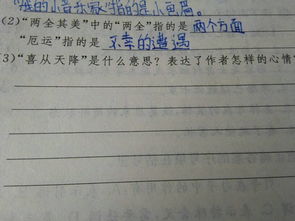 的小音乐家"指的是小画眉。
(2)"两全其美"中的"两全"指的是 两个方面
"厄运"指的是 不幸的遭遇
3)"喜从天降"是什么意思?表达了作者怎样的心情